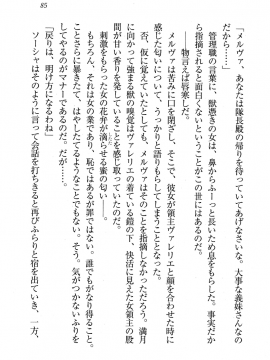 85
「メルヴァ、あなたは隊長殿の帰りを待っていてあげなさいな。大事な義妹さんなの
だから……」
管理職の言葉に、獣憑きの女は、鼻からふーっと長いため息をもらした。事実だか
ら指摘されると面白くないということがこの世にはあるのだ。
――物言えば唇寒し。
メルヴァは苦みに口を閉ざし、そこで、彼女が領主ヴァレリエと顔を合わせた時に
感じた匂いについて、うっかりと語りもらしてしまうことはなかった。
否、仮に覚えていたとしても、メルヴァはそのことを指摘しなかっただろう。満月
に向かってゆく獣の嗅覚はヴァレリエの着ている鎧の下、快活に見えた女領主の股
間が甘い香りを発していることを感じ取っていたのだ。
刺激をもらった女の花弁が滴らせる蜜の匂い――。
もちろん、それは女の業であり、恥ではあるが罪ではない。誰でもがなり得ること。
ことさらに暴きたて、はやしたてるようなことでもあるまい。そう、気がつかないふりを
してやるのがマナーであるのだ。だが……。
「戻りは、明け方になるわね」
ソーシャはそのように言って会話を打ちきると再びふらりと宿を出ていき、一方、